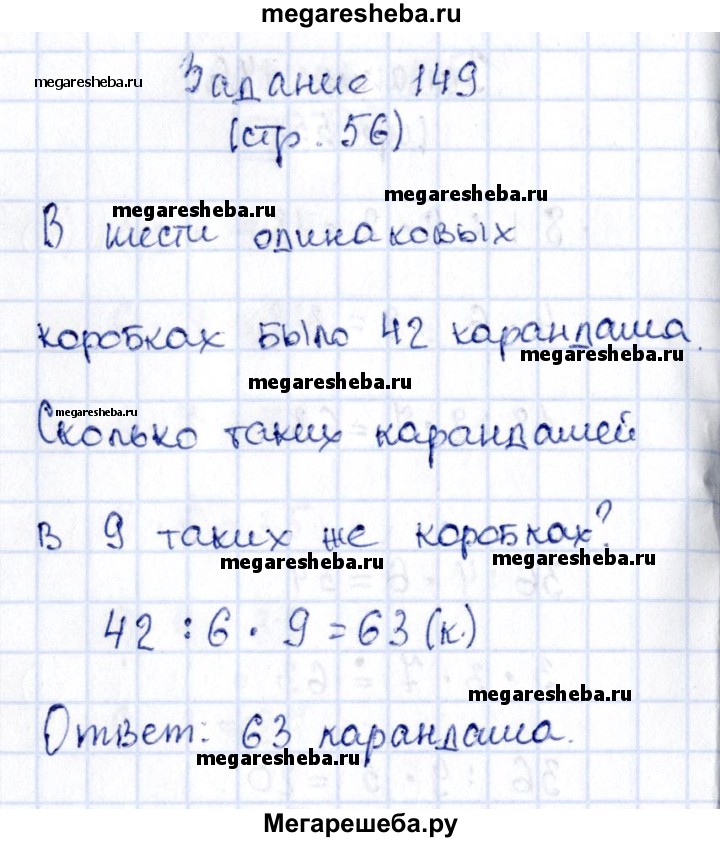 megaresheba.ru
Задание 149
megaresheba.ru
(стр. 56)
megaresheba.ru
megaresheba.ru
В шести одинаковых
коробках было 42 карандаша.
megaresheba.ru
megaresheba.ru
megaresheba.ru
Сколько таких карандашей
в 9 таких же коробках?
megaresheba.ru
megaresheba.ru
42 : 6 · 9 = 63 (к.)
megaresheba.ru
Ответ: 63 карандаша.
megaresheba.ru
Мегарешеба.ру